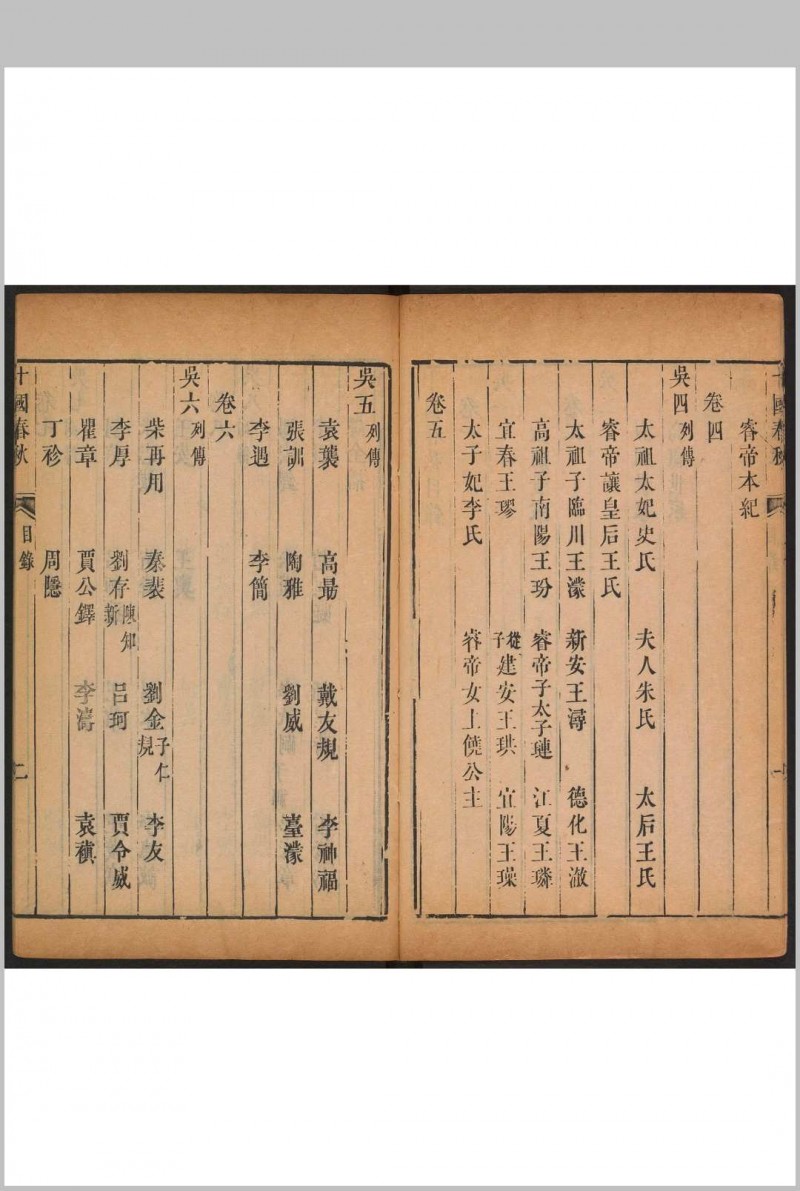 十國春秋
睿帝本紀
卷四
吳四 列傳
太祖太妃史氏 夫人朱氏 太后王氏
睿帝讓皇后王氏
太祖子臨川王濛 新安王潯 德化王澈
高祖子南陽王玢 睿帝子太子璉 江夏王璘
宜春王璆 從子建安王珙 宜陽王璪
太子妃李氏 睿帝女上饒公主
卷五
吳五 列傳
袁襲 高勗 戴友規 李神福
張訓 陶雅 劉威 臺濛
李遇 李簡
卷六
吳六 列傳
柴再用 秦裴 劉金 子仁規 李友
李厚 劉存 陳知新 呂珂 賈令威
瞿章 賈公鐸 李濤 袁稹
丁袗 周隱
十國春秋 目錄 二